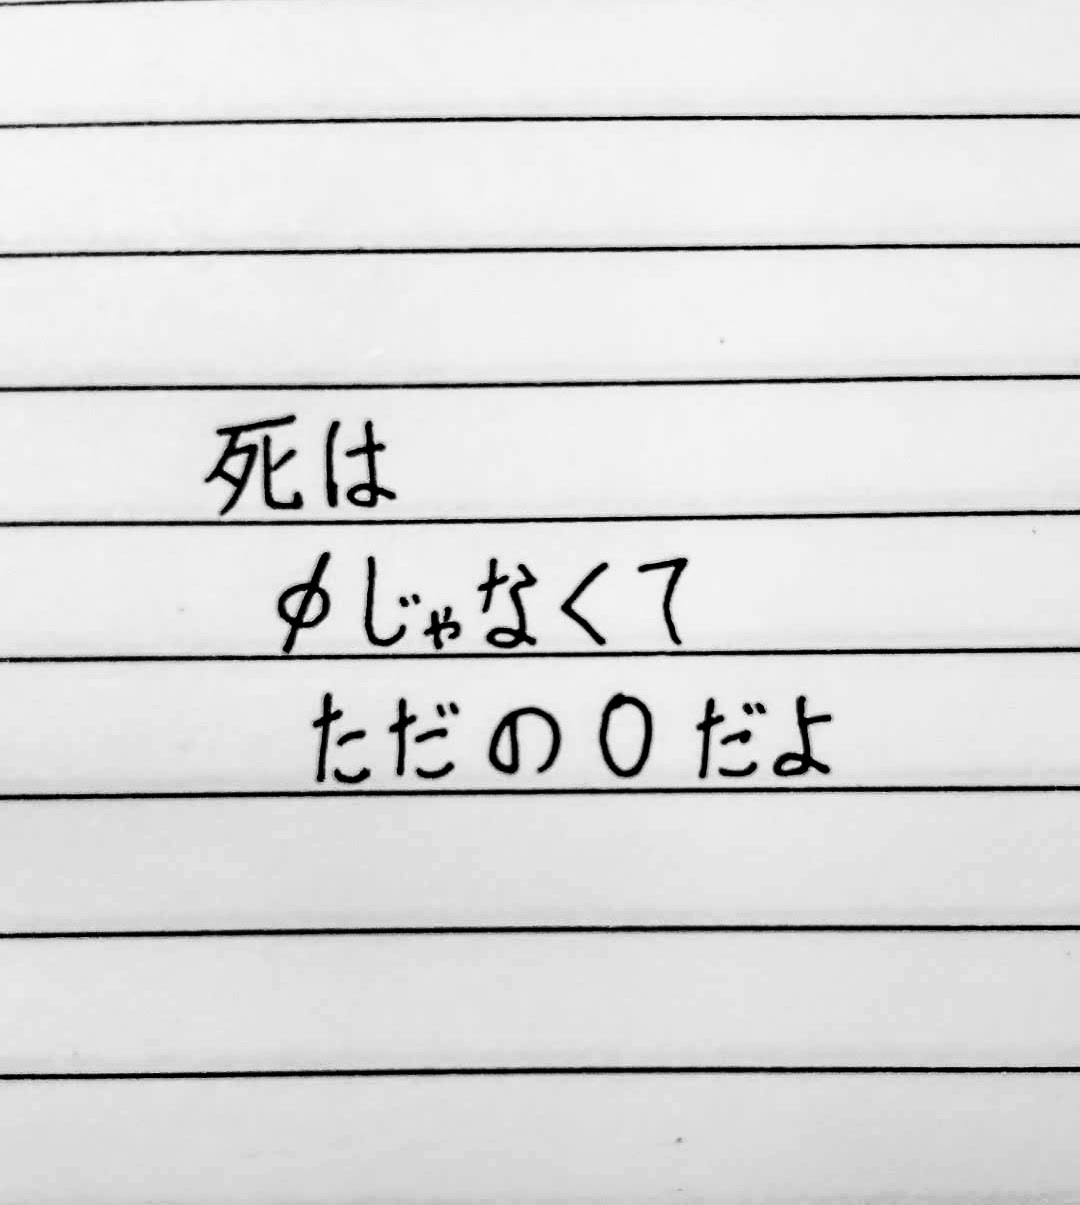 死は
∮じゃなくて
ただの0だよ